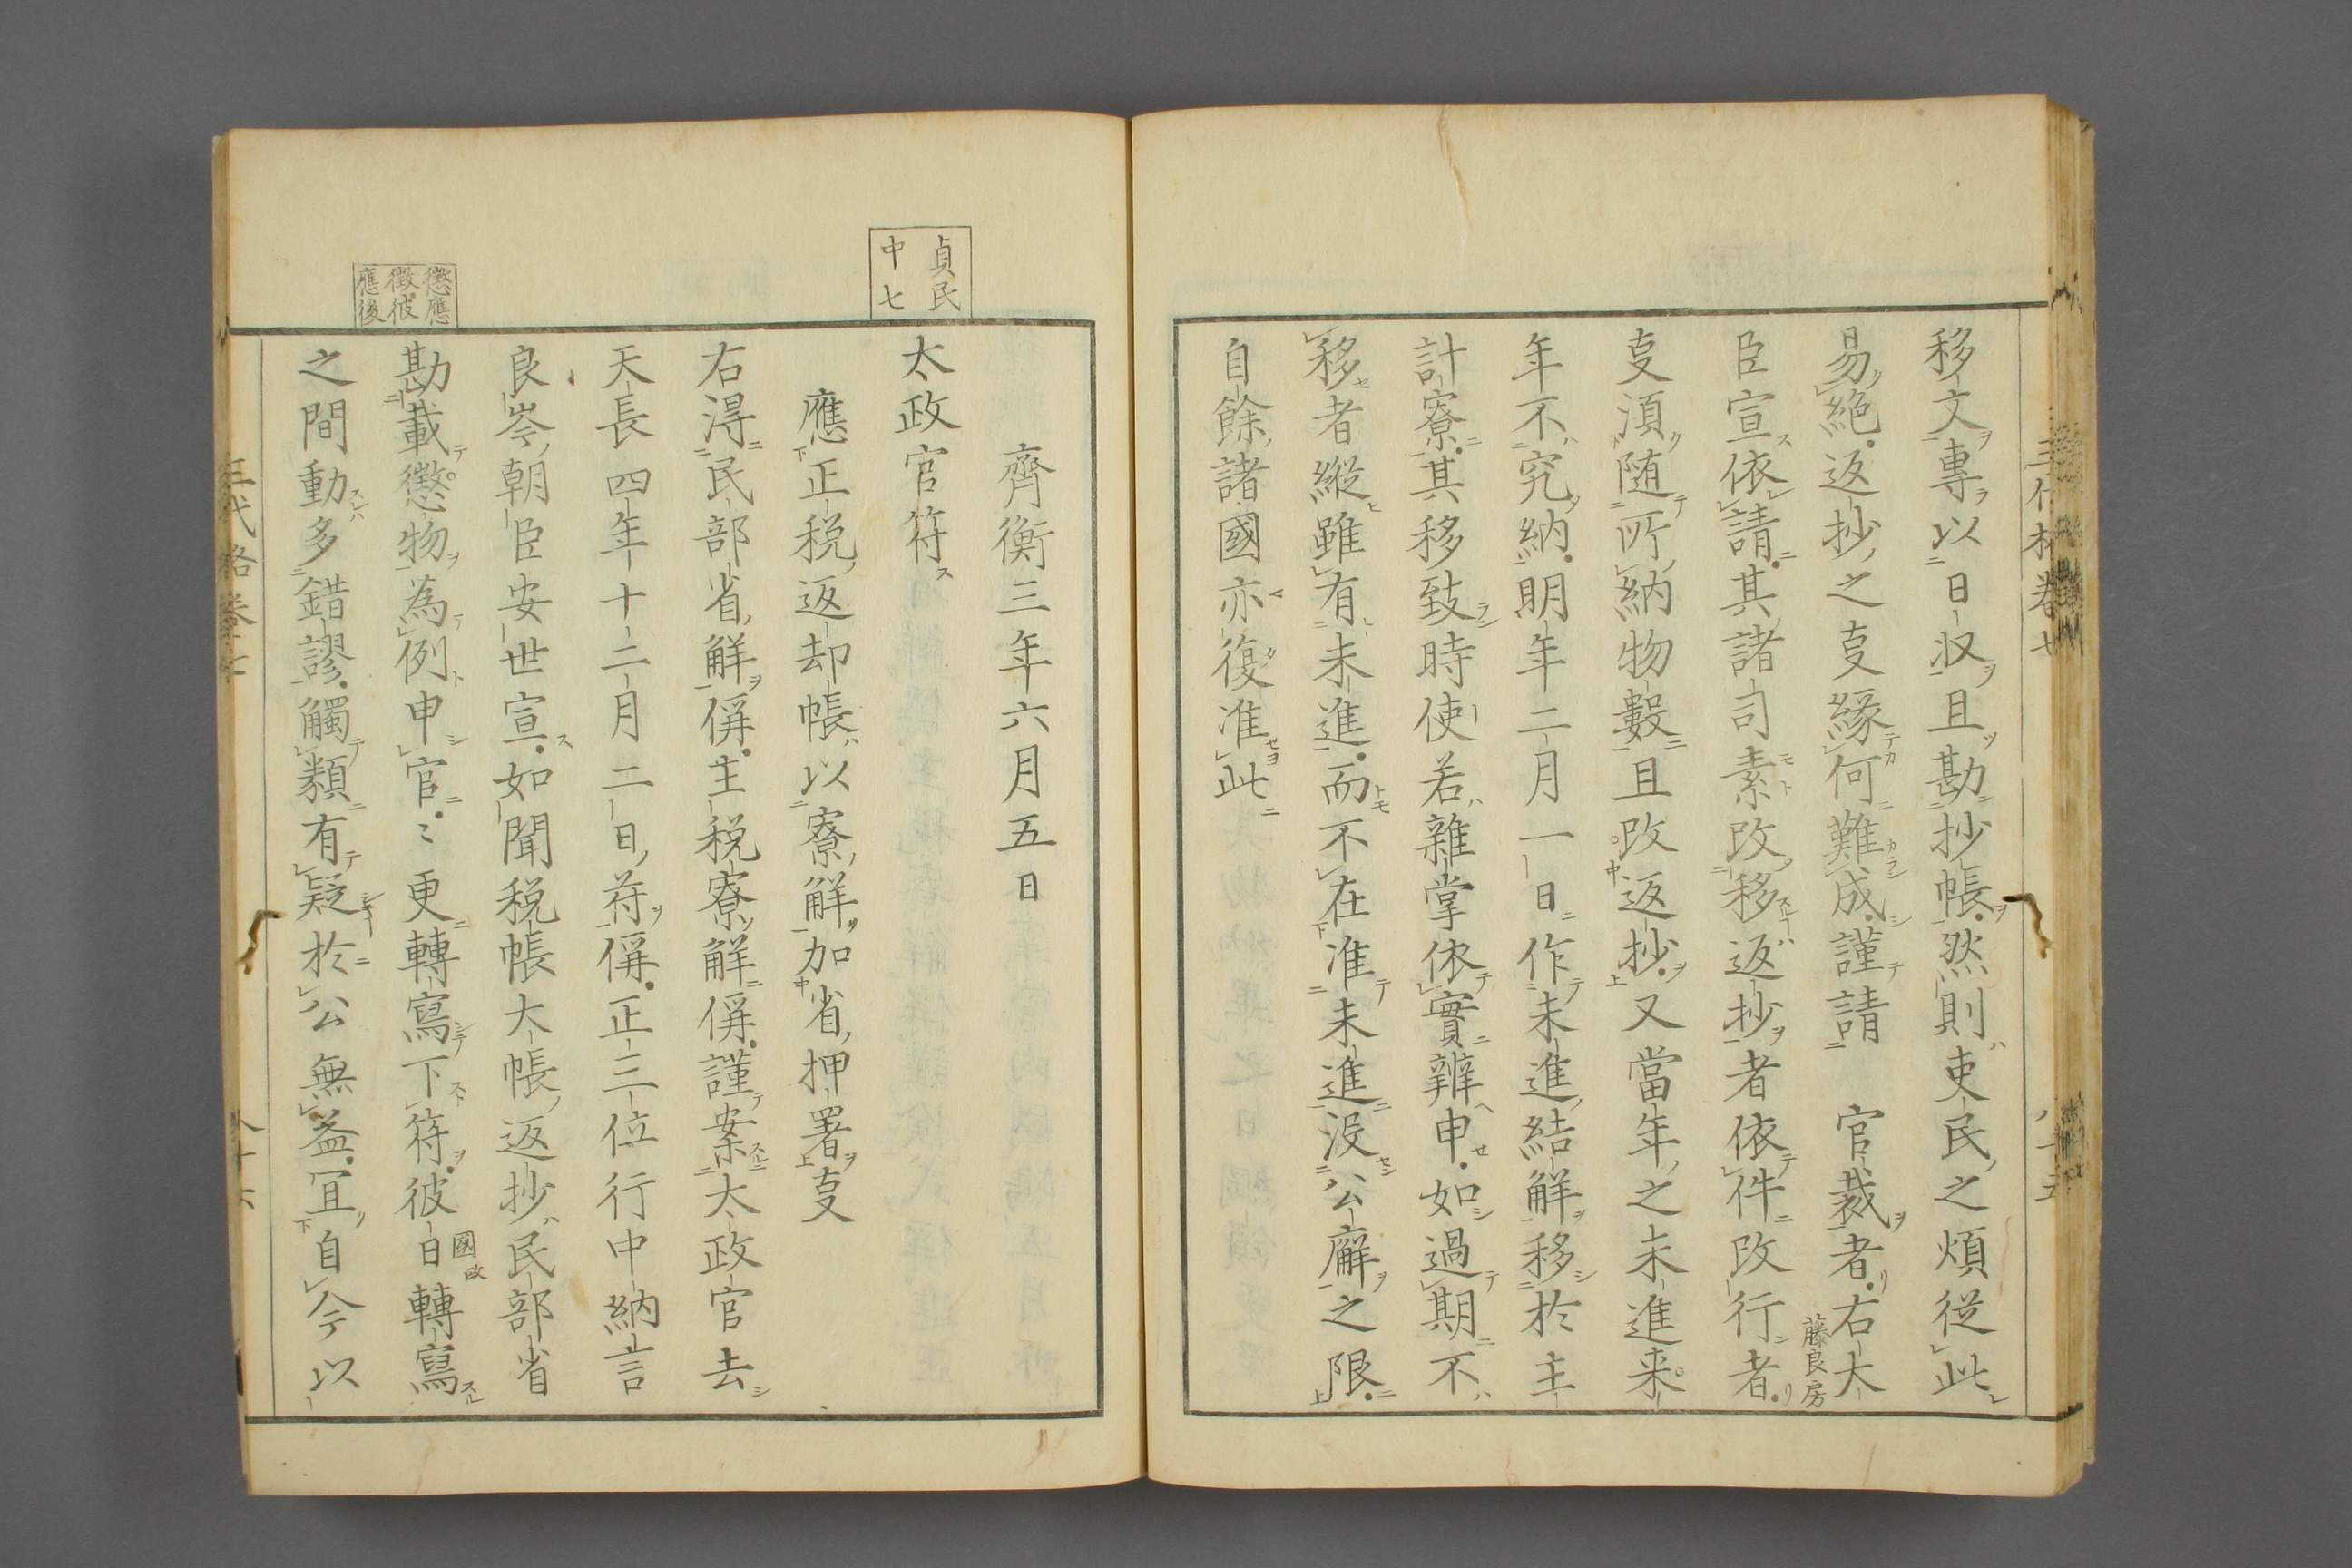 移文專以日収且勘抄帳然則吏民之煩従此
易絶返抄之㕝縁何難成謹請　官裁者右大
藤良房
臣宣依請其諸司素改移返抄者依件改行者
㕝湏随所納物數且改返抄又當年之未進来
年不究納明年二月一日作未進結解移於主
計寮其移致時使若雜掌依實辨申如過期不
移者縦雖有未進而不在准未進没公廨之限
自餘諸國亦復准此
齊衡三年六月五日
貞民
中七
太政官符
應正税返却帳以寮解加省押署㕝
右得民部省解偁主税寮解偁謹案太政官去
天長四年十二月二日符偁正三位行中納言
良岑朝臣安世宣如聞税帳大帳返抄民部省
懲應
徴彼
應後
勘載懲物為例申官〻更轉寫下符彼日轉寫
國政
之間動多錯謬觸類有疑於公無益冝自今以
三代格卷七
八十六